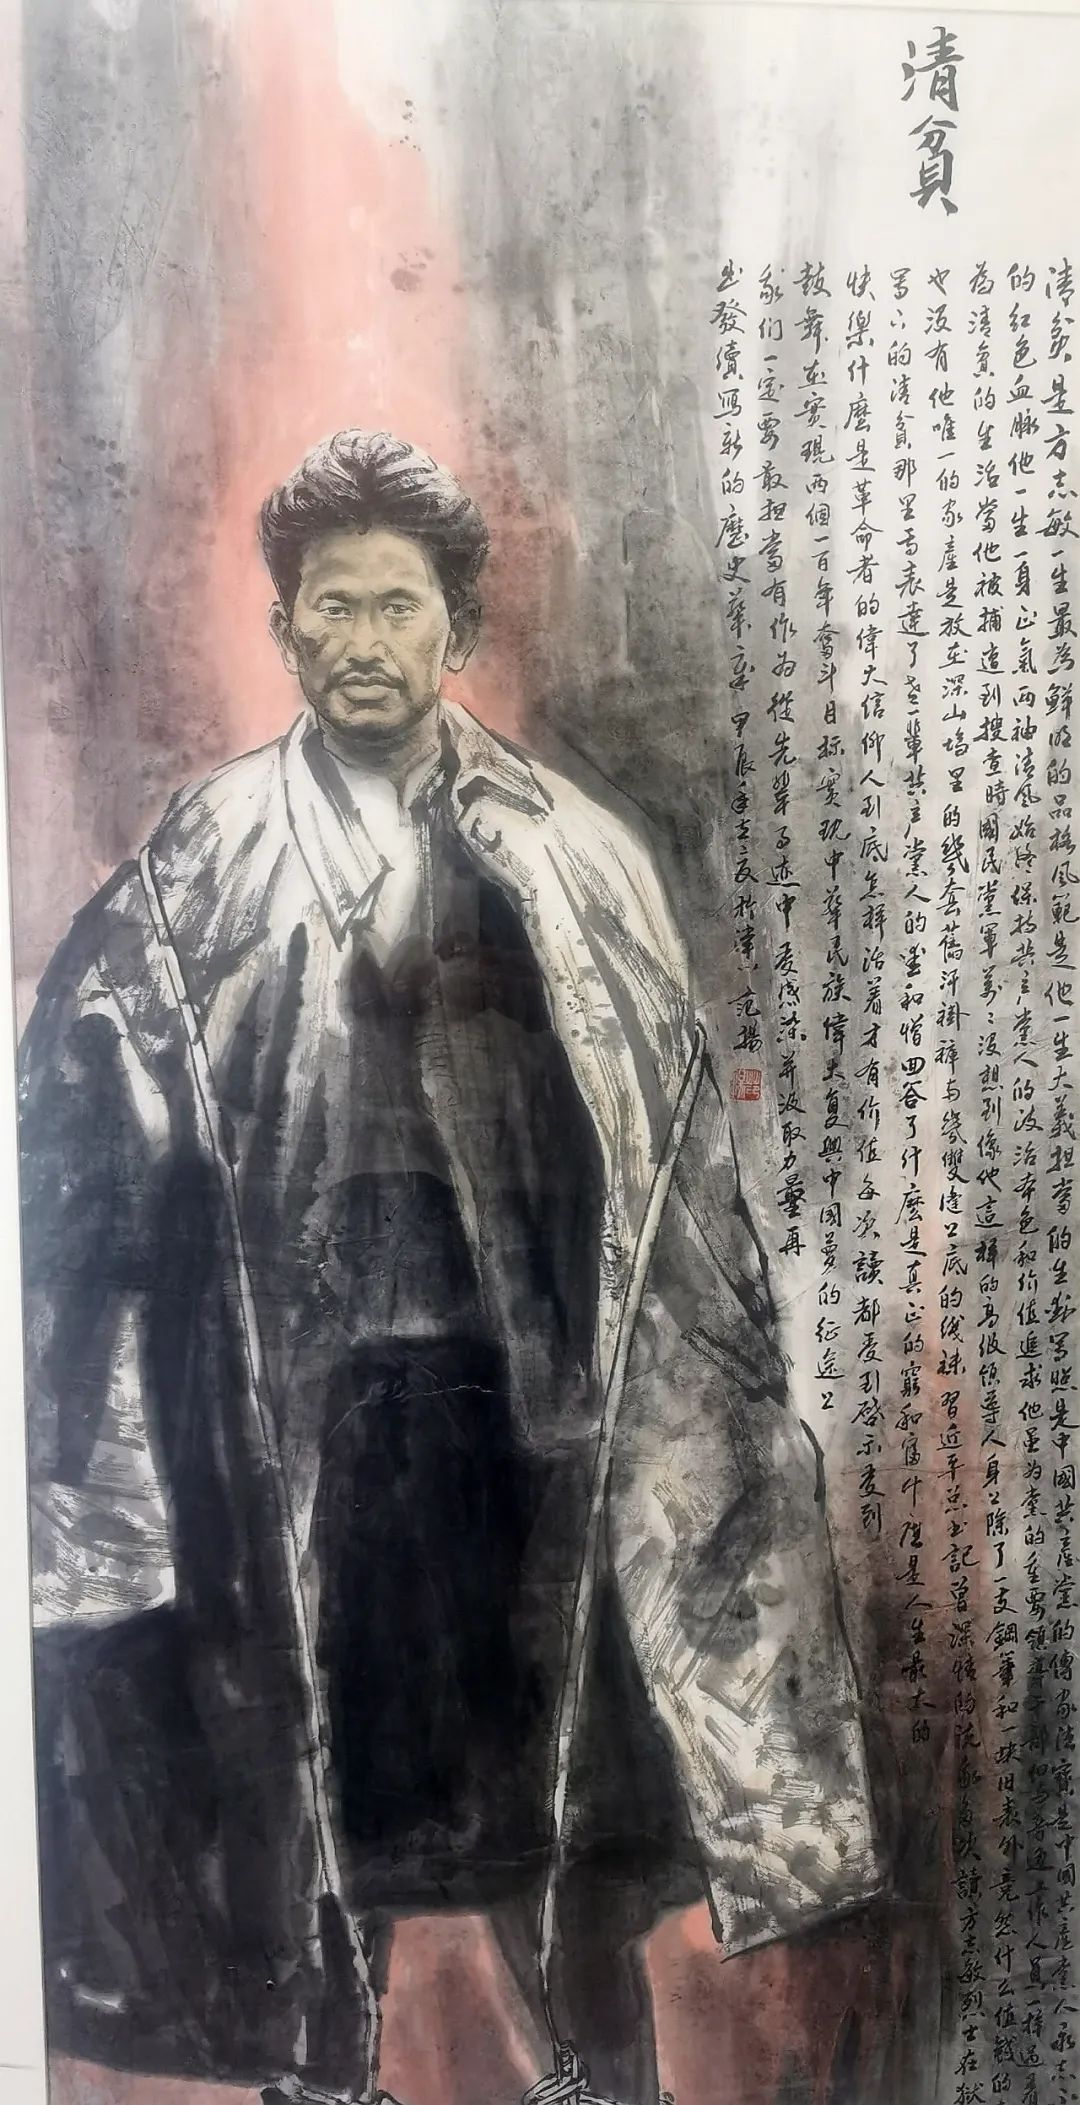 清貧
清貧是方志敏一生最为鮮明的品格風範是他一生大義担當的生動寫照是中國共產党的傳家法寶是中国共產党人永志不
的紅色血脉他一生一身正氣两袖清風始終保持共产党人的政治本色和价值追求他虽为党的重要領導干部却与普通工作人員一樣過着
為清貧的生活當他被捕遭到搜查時國民党軍萬萬没想到像他這样的高级領导人身上除了一支鋼筆和一块旧表外竟然什么值錢的
也没有他唯一的家產是放在深山塢里的幾套舊汗褂裤与幾雙缝上底的线袜習近平总书記曾深情的说我每次讀方志敏烈士在狱
写下的清貧那里面表達了老一輩共产党人的爱和憎回答了什麽是真正的窮和富什麽是人生最大的
快樂什麽是革命者的偉大信仰人到底怎样活着才有价值每次讀都受到啓示受到
鼓舞在實現两個一百年奮斗目标實現中華民族偉大复興中國夢的征途上
我们一定要敢担當有作为從先輩事迹中受感染并汲取力量再
出發續寫新的歷史華章甲辰年 范揚